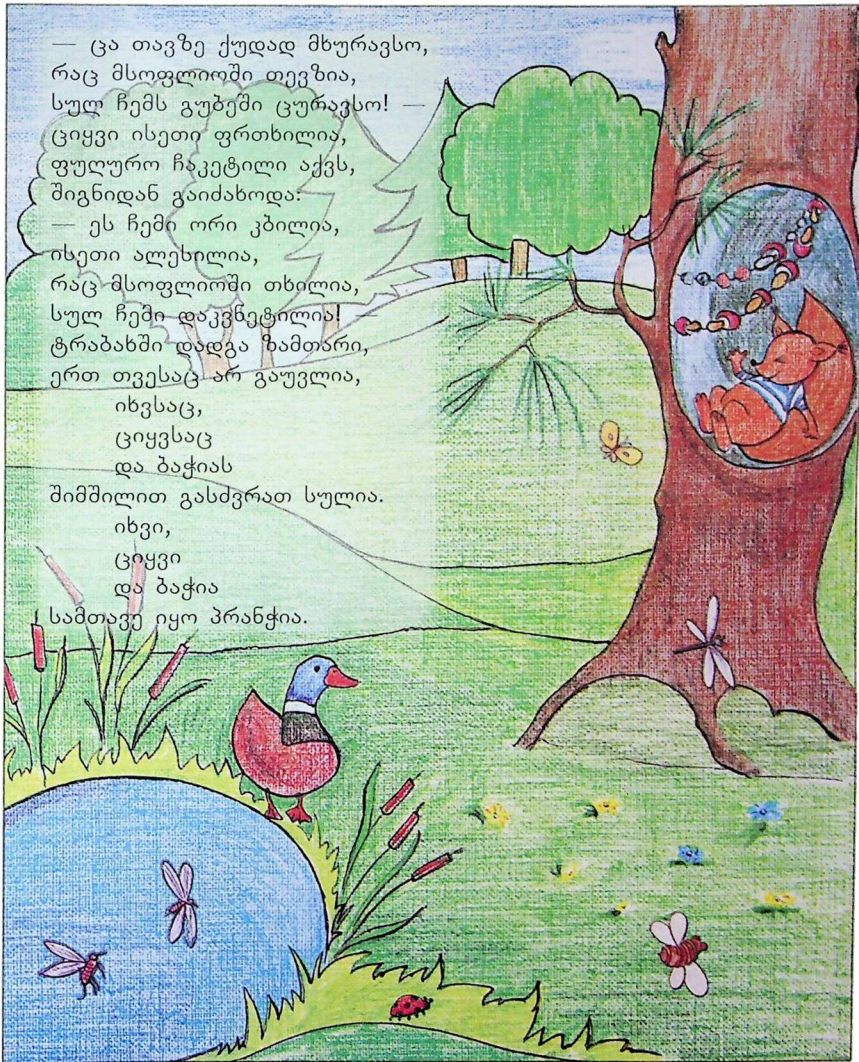 — ცა თავზე ქუდად მხურავსო,
რაც მსოფლიოში თევზია,
სულ ჩემს გუბეში ცურავსო! —
ციყვი ისეთი ფრთხილია,
ფუღურო ჩაკეტილი აქვს,
შიგნიდან გაიძახოდა:
— ეს ჩემი ორი კბილია,
ისეთი ალესილია,
რაც მსოფლიოში თხილია,
სულ ჩემი დაკვნეტილია!
ტრაბახში დადგა ზამთარი,
ერთ თვესაც არ გაუვლია,
იხვსაც,
ციყვსაც
და ბაჭიას
შიმშილით გასძვრათ სულია.
იხვი,
ციყვი
და ბაჭია
სამთავე იყო პრანჭია.